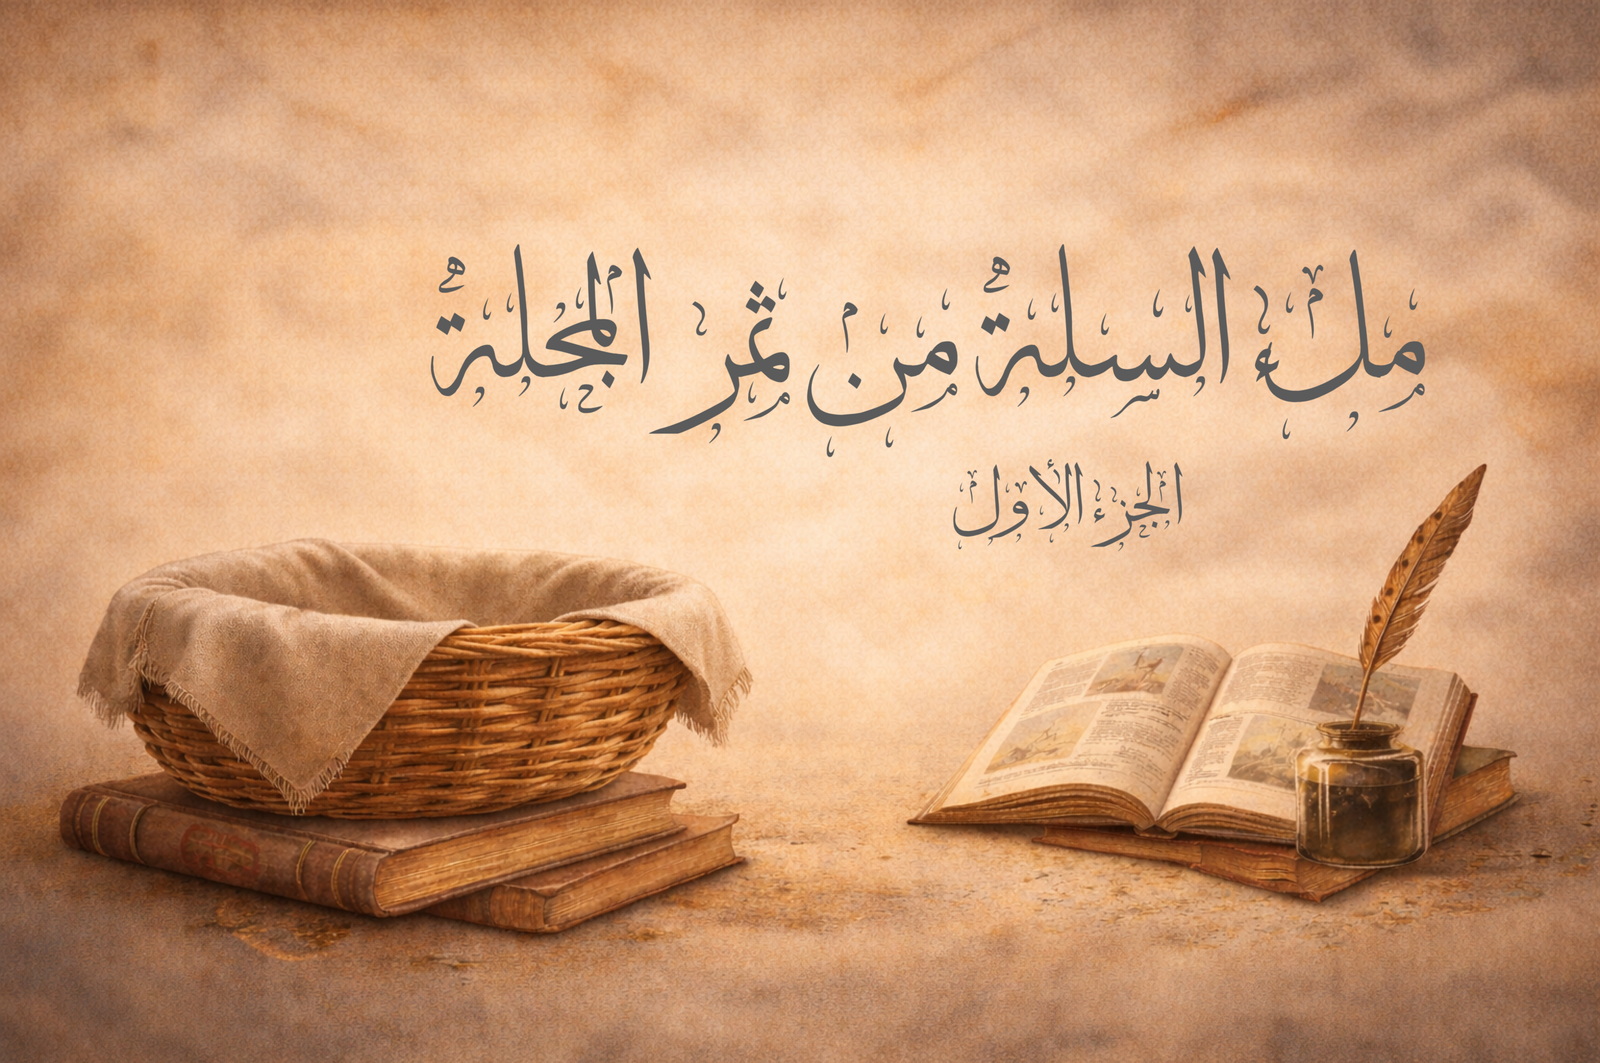 ملء السلة من ثمر المجلة
الجزء الأول